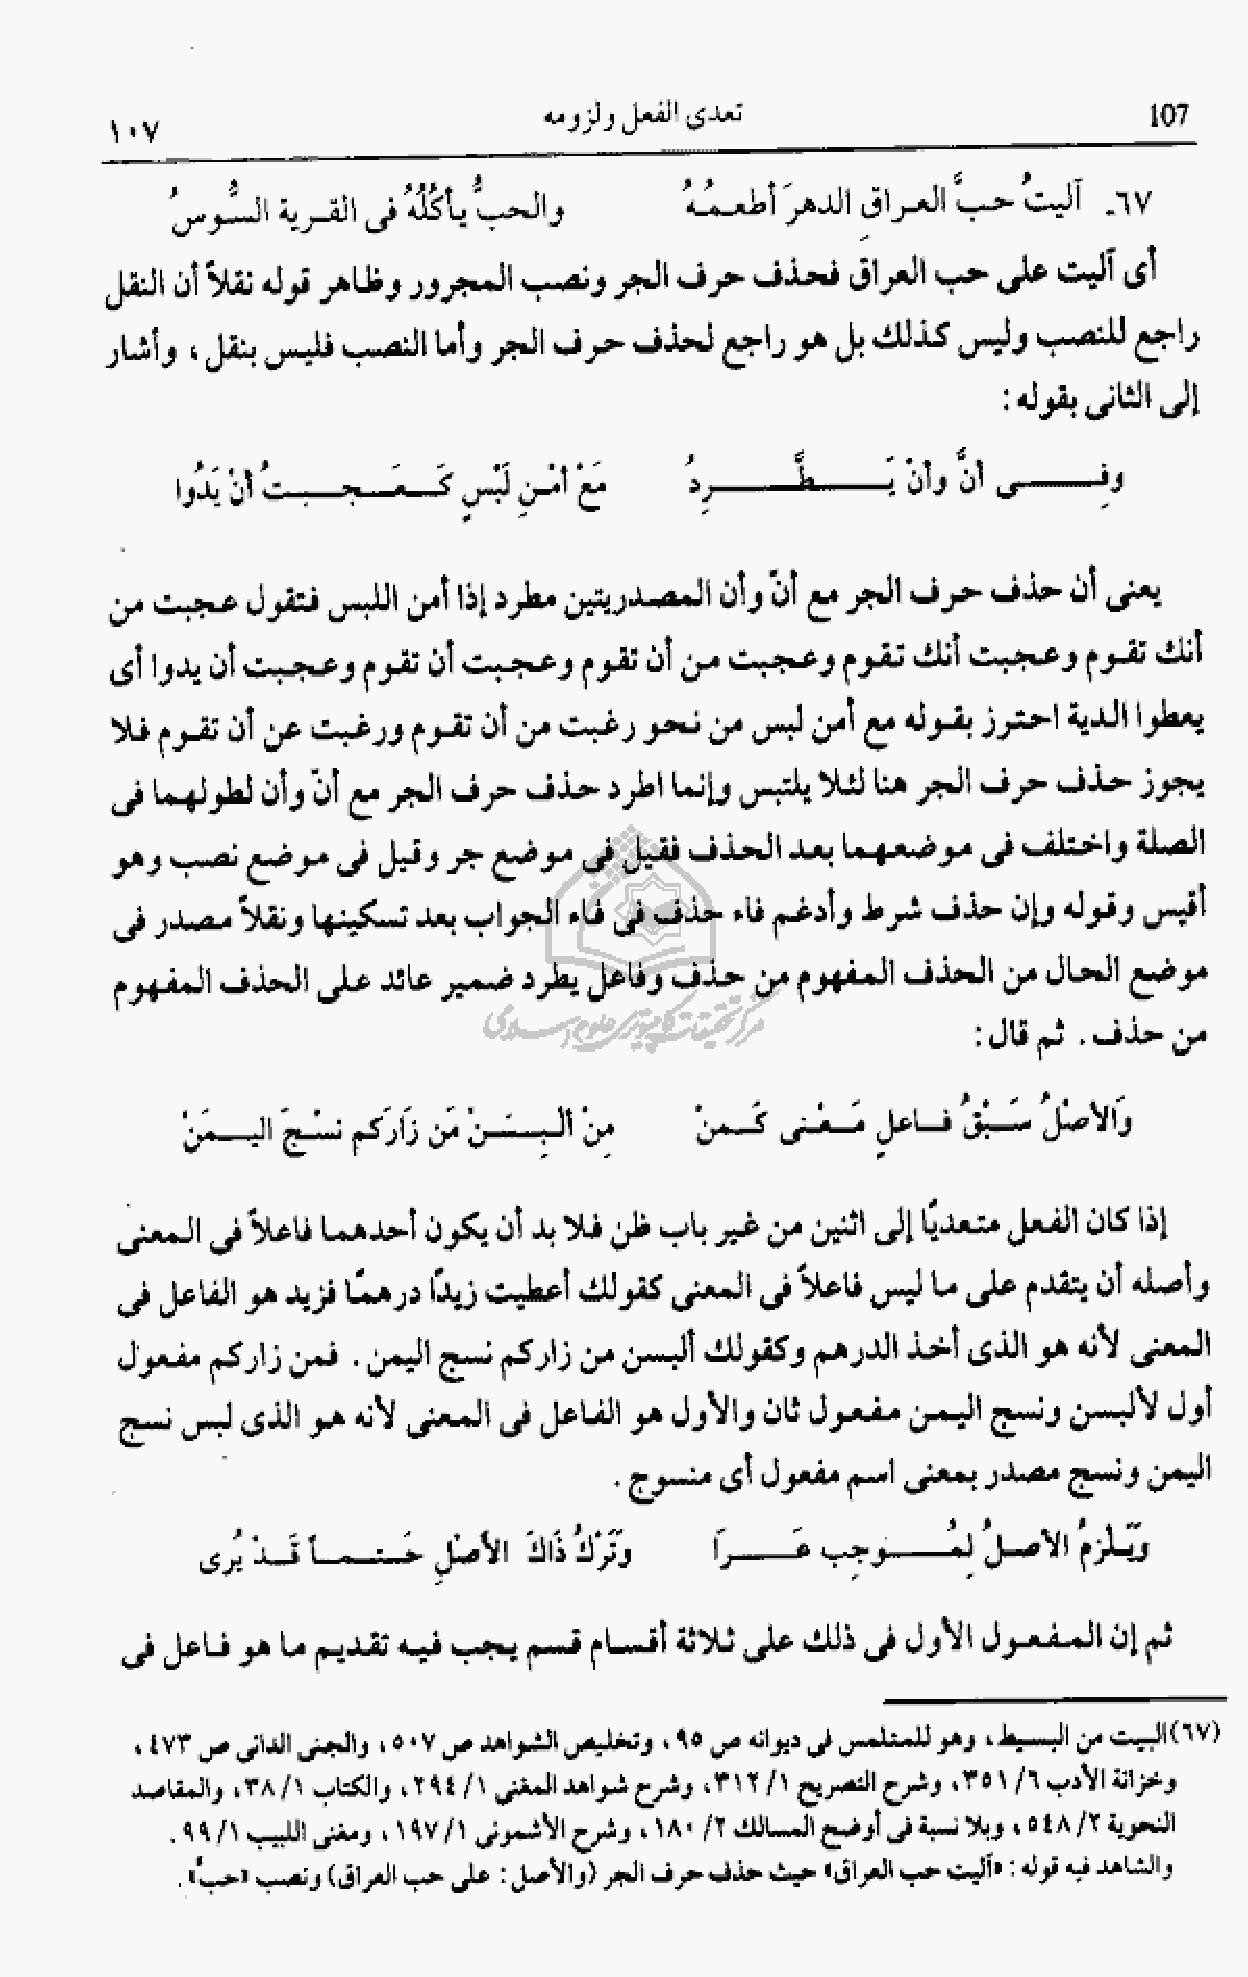 107 تعدى الفعل ولزومه ١٠٧
٦٧ـ آليتُ حبَّ العراقِ الدهرَ أطعمُهُ والحبُّ يأكُلُهُ فى القرية السُّوسُ
أى آليت على حب العراق فحذف حرف الجر ونصب المجرور وظاهر قوله نقلاً أن النقل
راجع للنصب وليس كذلك بل هو راجع لحذف حرف الجر وأما النصب فليس بنقل ، وأشار
إلى الثانى بقوله :
وفِى أنَّ وأنْ يَطَّرِدُ مَعَ أمْنِ لَبْسٍ كَعَجبتُ أنْ يَدُوا
يعنى أن حذف حرف الجر مع أنّ وأن المصدريتين مطرد إذا أمن اللبس فتقول عجبت من
أنك تقوم وعجبت أنك تقوم وعجبت من أن تقوم وعجبت أن تقوم وعجبت أن يدوا أى
يعطوا الدية احترز بقوله مع أمن لبس من نحو رغبت من أن تقوم ورغبت عن أن تقوم فلا
يجوز حذف حرف الجر هنا لئلا يلتبس وإنما اطرد حذف حرف الجر مع أنّ وأن لطولهما فى
الصلة واختلف فى موضعهما بعد الحذف فقيل فى موضع جر وقيل فى موضع نصب وهو
أقيس وقوله وإن حذف شرط وأدغم فاء حذف فى فاء الجواب بعد تسكينها ونقلاً مصدر فى
موضع الحال من الحذف المفهوم من حذف وفاعل يطرد ضمير عائد على الحذف المفهوم
من حذف . ثم قال :
وَالأصْلُ سَبْقُ فاعلٍ مَعْنى كَمنْ مِنْ ألبِسَنْ مَن زَارَكم نسْجَ اليمَنْ
إذا كان الفعل متعديًا إلى اثنين من غير باب ظن فلا بد أن يكون أحدهما فاعلاً فى المعنى
وأصله أن يتقدم على ما ليس فاعلاً فى المعنى كقولك أعطيت زيدًا درهمًا فزيد هو الفاعل فى
المعنى لأنه هو الذى أخذ الدرهم وكقولك ألبسن من زاركم نسج اليمن . فمن زاركم مفعول
أول لألبسن ونسج اليمن مفعول ثان والأول هو الفاعل فى المعنى لأنه هو الذى لبس نسج
اليمن ونسج مصدر بمعنى اسم مفعول أى منسوج .
وَيَلزمُ الأصلُ لِمُوجِب عَرَا وَتَرْكُ ذَاكَ الأصْلِ حَتماً قَدْ يُرى
ثم إن المفعول الأول فى ذلك على ثلاثة أقسام قسم يجب فيه تقديم ما هو فاعل فى
(٦٧) البيت من البسيط، وهو للمتلمس فى ديوانه ص ٩٥، وتخليص الشواهد ص ٥٠٧، والجنى الدانى ص ٤٧٣،
وخزانة الأدب ٦/ ٣٥١، وشرح التصريح ١/ ٣١٢، وشرح شواهد المغنى ١/ ٢٩٤، والكتاب ١/ ٣٨، والمقاصد
النحوية ٢/ ٥٤٨، وبلا نسبة فى أوضح المسالك ٢/ ١٨٠، وشرح الأشمونى ١/ ١٩٧، ومغنى اللبيب ١/ ٩٩.
والشاهد فيه قوله: «آليت حب العراق» حيث حذف حرف الجر (والأصل: على حب العراق) ونصب «حبَّ».
مركز تحقيقات كامپيوترى علوم اسلامى